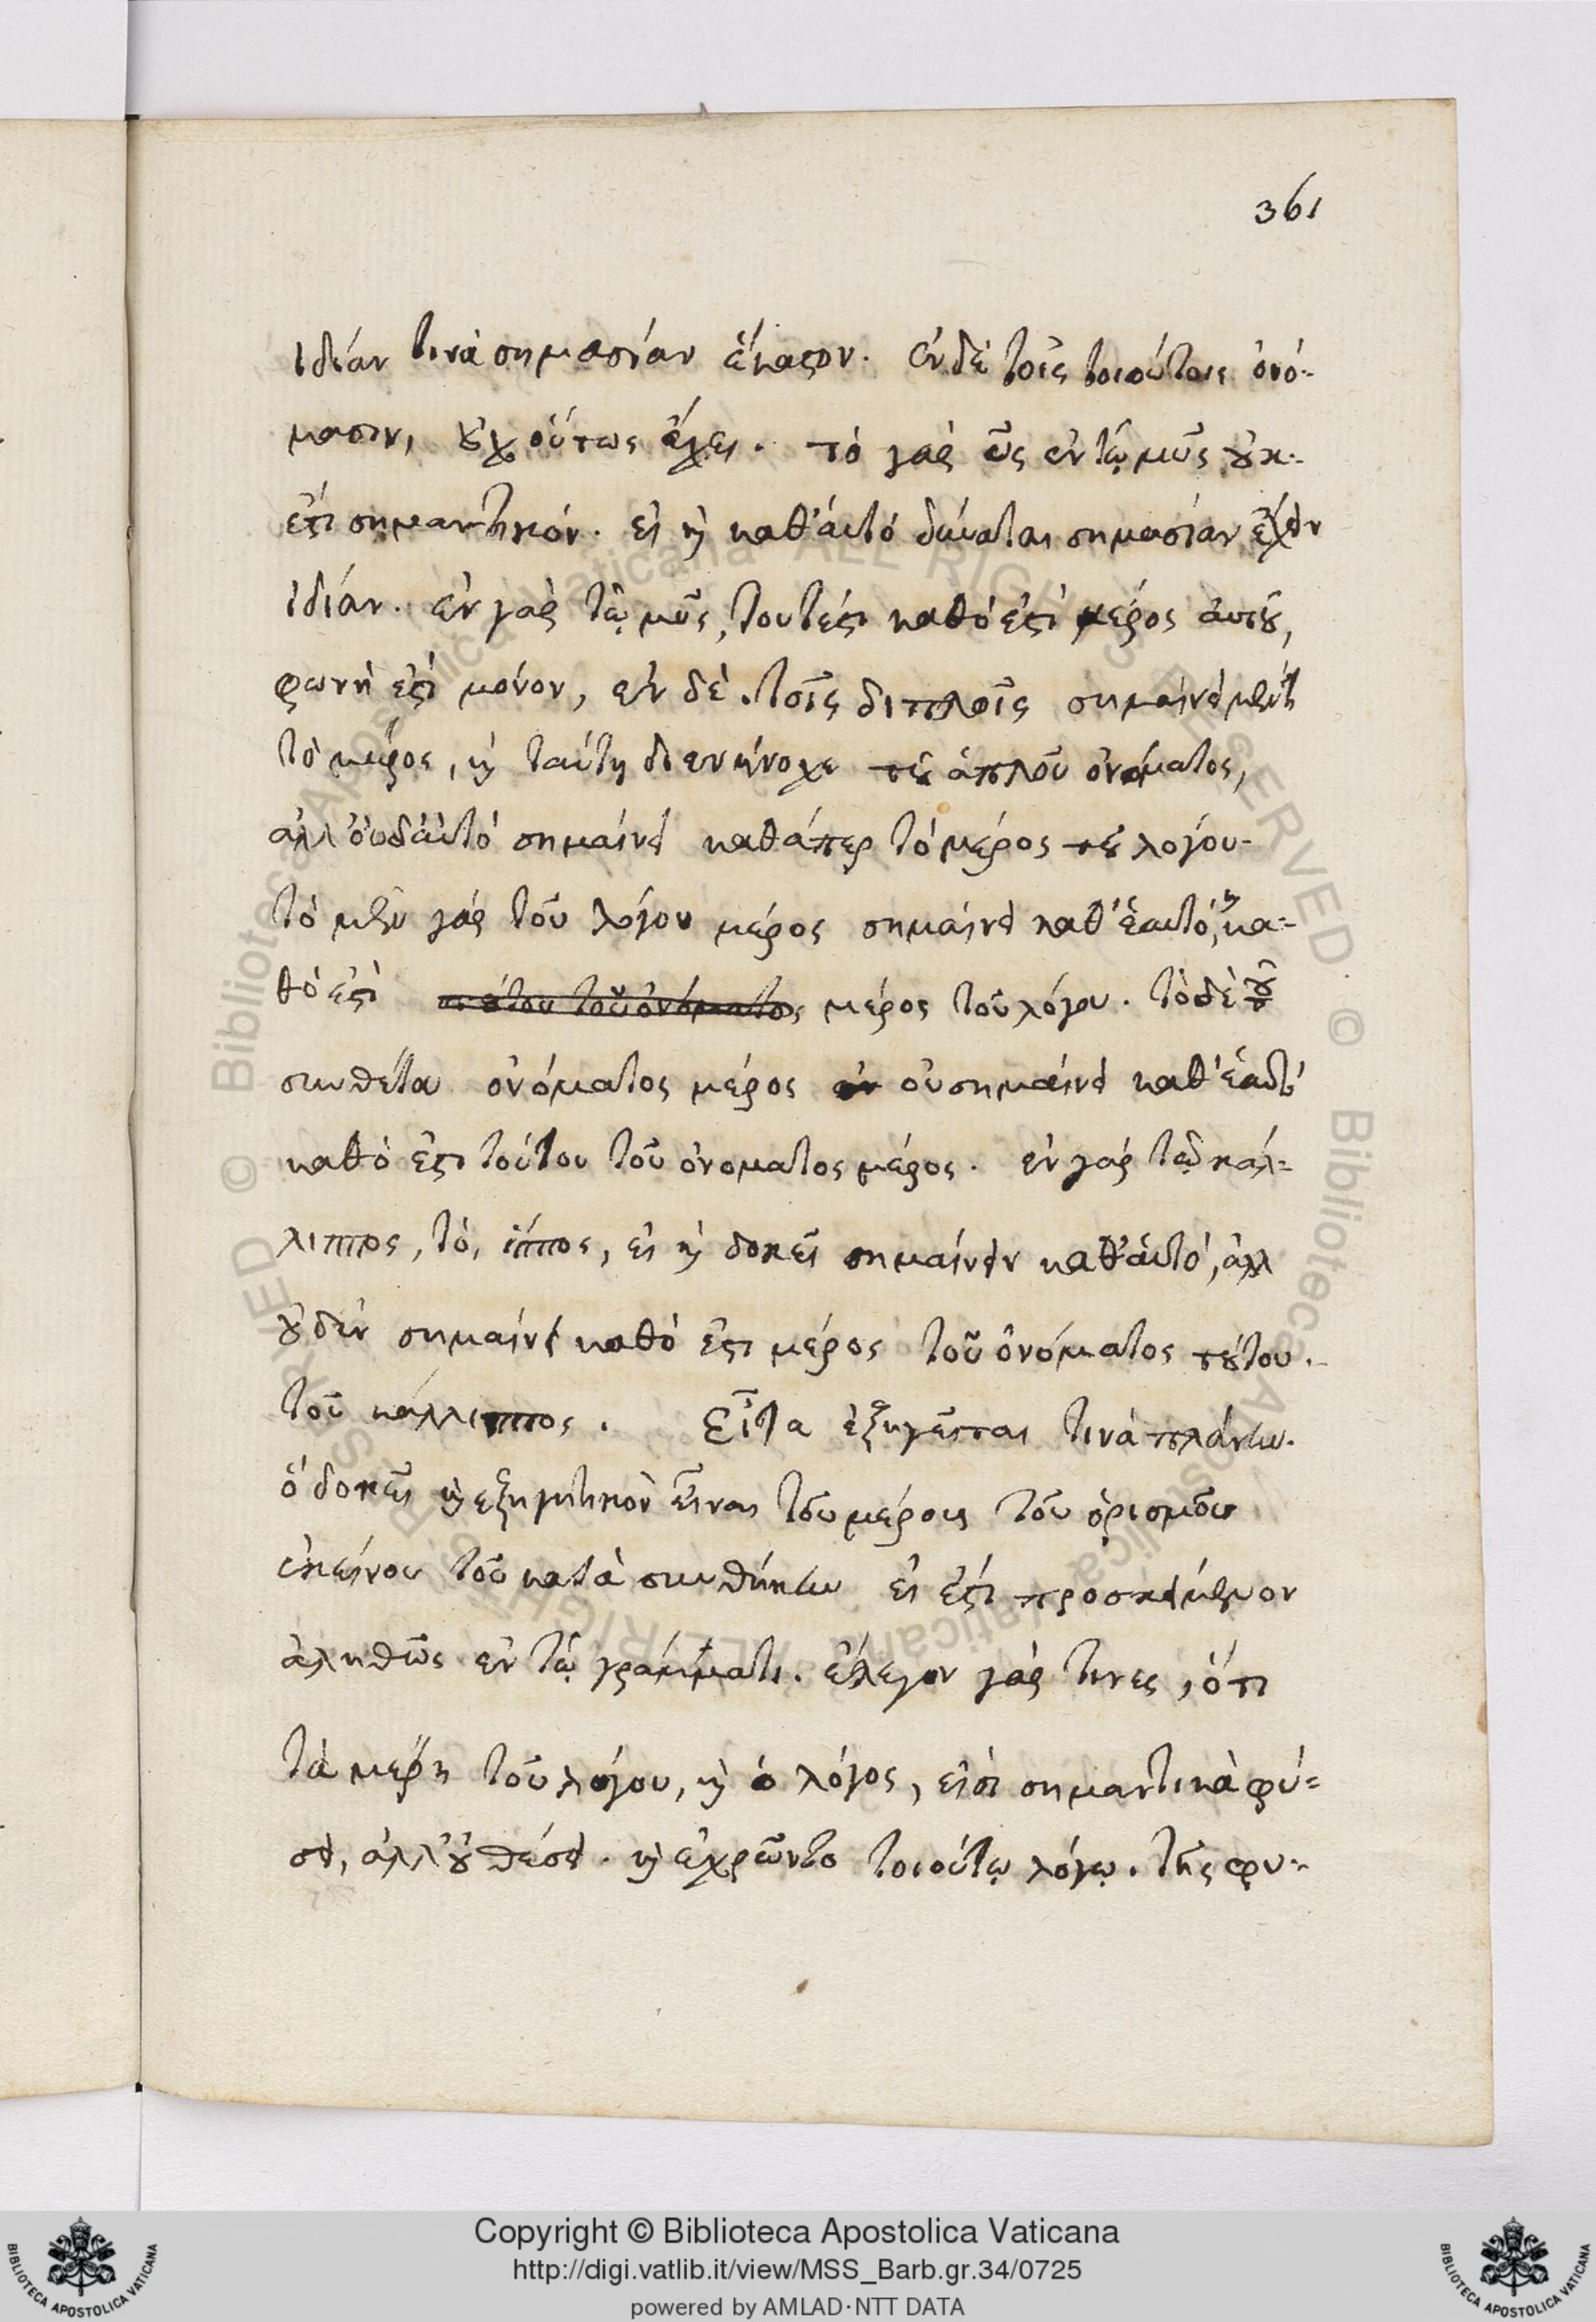 361
ιδίαν τινὰ σημασίαν ἕκαστον. ἐν δὲ τοῖς τοιούτοις ὀνό-
μασιν, οὐχ οὕτως ἔχει. τὸ γὰρ ῦς ἐν τῷ μῦς οὐκ-
έτι σημαντικόν. εἰ καὶ καθ' αὑτό δύναται σημασίαν ἔχειν
ἰδίαν. ἐν γὰρ τῷ μῦς, τουτέστι καθό ἐστί μέρος αὐτοῦ,
φωνή ἐστί μόνον, ἐν δὲ τοῖς διπλοῖς σημαίνει μέν τι
τὸ μέρος, καὶ ταύτῃ διενήνοχε τοῦ ἁπλοῦ ὀνόματος,
ἀλλ' οὐδ' αὑτό σημαίνει καθάπερ τὸ μέρος τοῦ λογου.
τὸ μὲν γάρ τοῦ λόγου μέρος σημαίνει καθ' ἑαυτό, καὶ κα-
θό ἐστὶ μέρος τοῦ λόγου. τὸ δὲ τοῦ
συνθέτου ὀνόματος μέρος οὐ σημαίνει καθ' ἑαυτό
καθὸ ἐστι τούτου τοῦ ὀνοματος μέρος. ἐν γάρ τῷ κάλ-
λιππος, τὸ, ἵππος, εἰ καὶ δοκεῖ σημαίνειν καθ' αὑτό, ἀλλ
οὐδέν σημαίνει καθὸ ἐστι μέρος τοῦ ὀνόματος τούτου.
τοῦ κάλλιππος. Εἶτα ἐξηγεῖται τινὰ πλάνην.
ὅ δοκεῖ καὶ εξηγητικὸν εἶναι τοῦ μέρους τοῦ ὁρισμοῦ
ἐκείνου τοῦ κατὰ συνθήκην εἰ ἐστί προσκείμενον
ἀληθῶς ἐν τῷ γράμματι. ἔλεγον γάρ τινες, ὅτι
τὰ μέρη τοῦ λόγου, καὶ ὁ λόγος, εἰσί σημαντικὰ φύ-
σει, ἀλλ' οὐ θέσει. καὶ ἐχρῶντο τοιούτῳ λόγῳ. τῆς φυ-
Copyright © Biblioteca Apostolica Vaticana
http://digi.vatlib.it/view/MSS_Barb.gr.34/0725
powered by AMLAD·NTT DATA